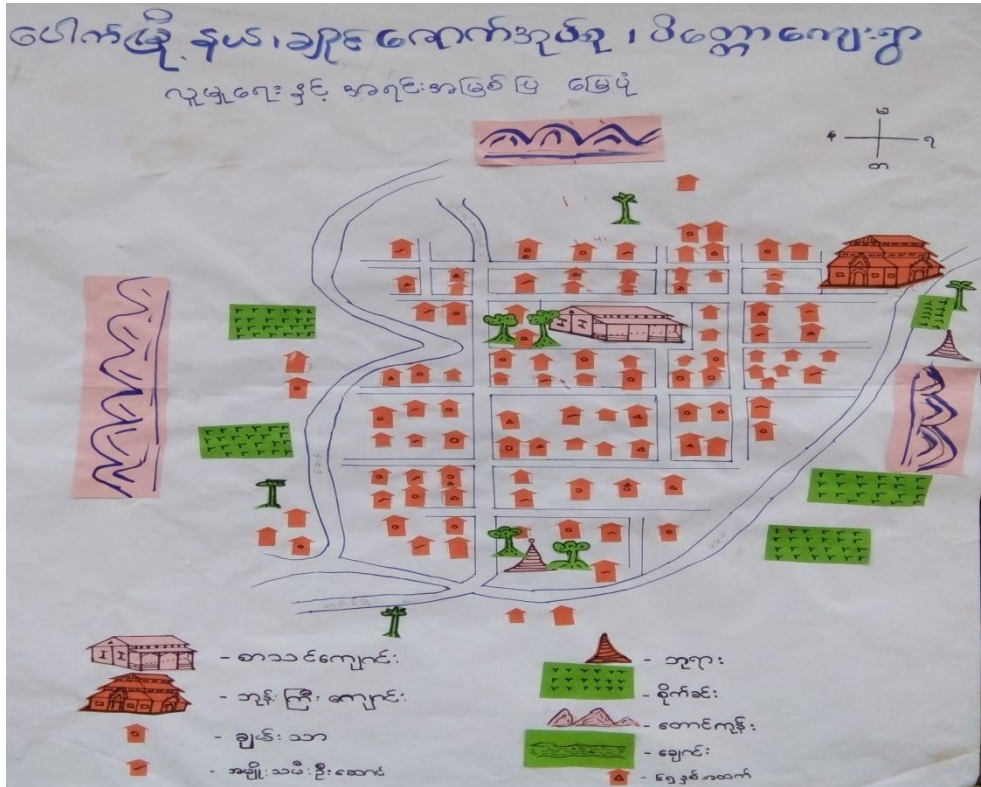 ပေါက်မြို့နယ်၊ချောင်းခြောက်အုပ်စု၊ပိတ္တောကျေးရွာ
လူမှုရေးနှင့် အရင်းအမြစ်ပြ မြေပုံ
မ
န
ရ
တ
- စာသင်ကျောင်း
- ဘုန်းကြီးကျောင်း
- ချမ်းသာ
- အမျိုးသမီးဦးဆောင်
- ဘုရား
- စိုက်ခင်း
- တောင်ကုန်း
- ချောင်း